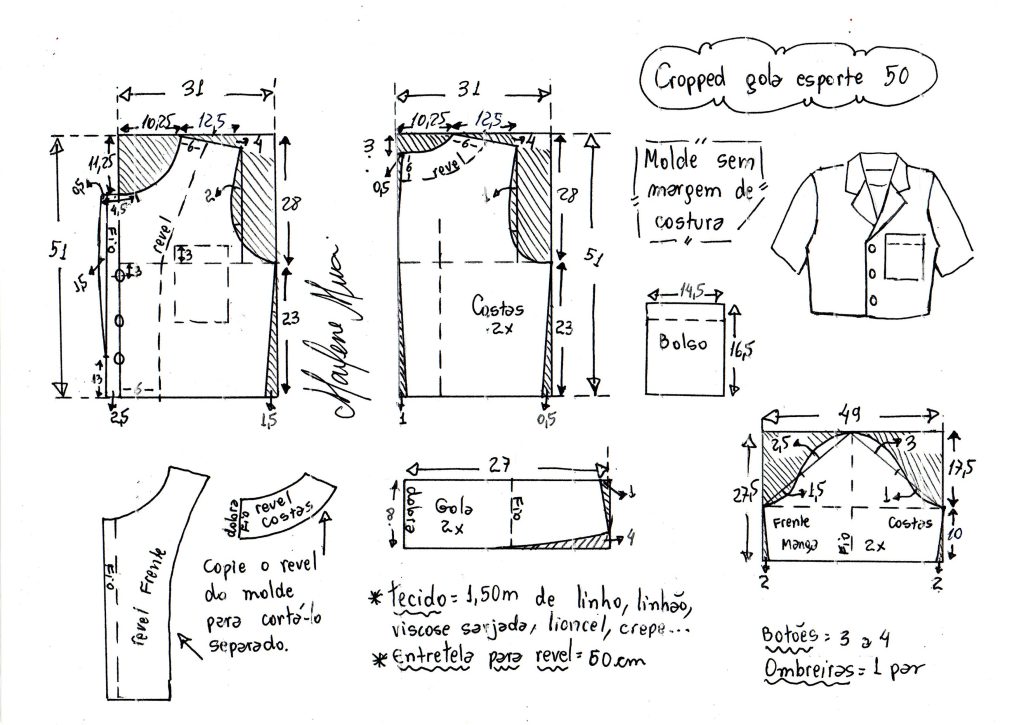 Cropped gola esporte 50
31
10,25 12,5
4
6
11,25
0,5
4,5
2
28
51
Fio
revel
3
3
1,5
23
13
6
2,5
1,5
Marlene Mukai
31
10,25 12,5
4
3
6
revel
6
0,5
1
28
51
Costas
2x
23
1
0,5
Molde sem
margem de
costura
14,5
Bolso
16,5
49
2,5
3
17,5
27,5
1,5
1
Frente
Costas
Manga
Fio
2x
10
2
2
revel Frente
Fio
dobra
Fio
revel
costas
Copie o revel
do molde
para cortá-lo
separado.
27
8
dobra
Gola
2x
Fio
1
4
* Tecido = 1,50m de linho, linhão,
viscose sarjada, liocel, crepe...
* Entretela para revel = 50 cm
Botões = 3 a 4
Ombreiras = 1 par